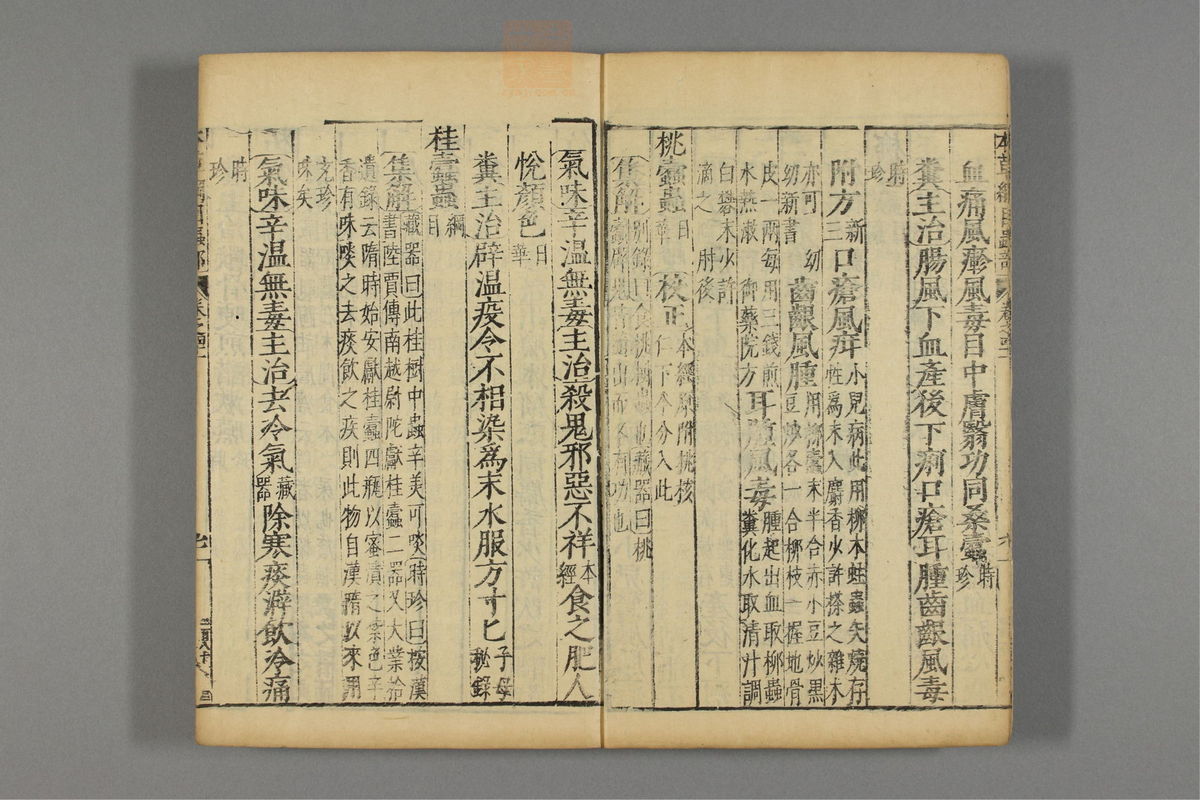 血痛風瘮風毒目中膚翳功同桑蠹時珍
糞主治腸風下血產後下痢口瘡耳腫齒齦風毒
時珍
附方新三口瘡風疳小兒病此用柳木蛀蟲矢燒存
性爲末入麝香少許搽之雜木
亦可幼
幼新書齒齦風腫用柳蠹末半合赤小豆炒黑
豆炒各一合柳枝一握地骨
皮一兩每用三錢煎
水熱漱御藥院方耳腫風毒腫起出血取柳蟲
糞化水取清汁調
白礬末少許
滴之肘後
桃蠹蟲日華校正
本經原附桃核
仁下今分入此
集解別錄曰食桃樹蟲也藏器曰桃
氣味辛温無毒主治殺鬼邪惡不祥本經食之肥人
悅顏色日華
糞主治辟温疫令不相染爲末水服方寸匕子母秘錄
桂蠹蟲綱目
集解藏器曰此桂樹中蟲辛美可啖時珍曰按漢
書陸賈傳南越尉陀獻桂蠹二器又大業拾
遺錄云隋時始安獻桂蠹四瓶以蜜漬之紫色辛
香有味啖之去痰飲之疾則此物自漢隋以來用
充珍
味矣
氣味辛温無毒主治去冷氣藏器除寒痰澼飲冷痛
時珍